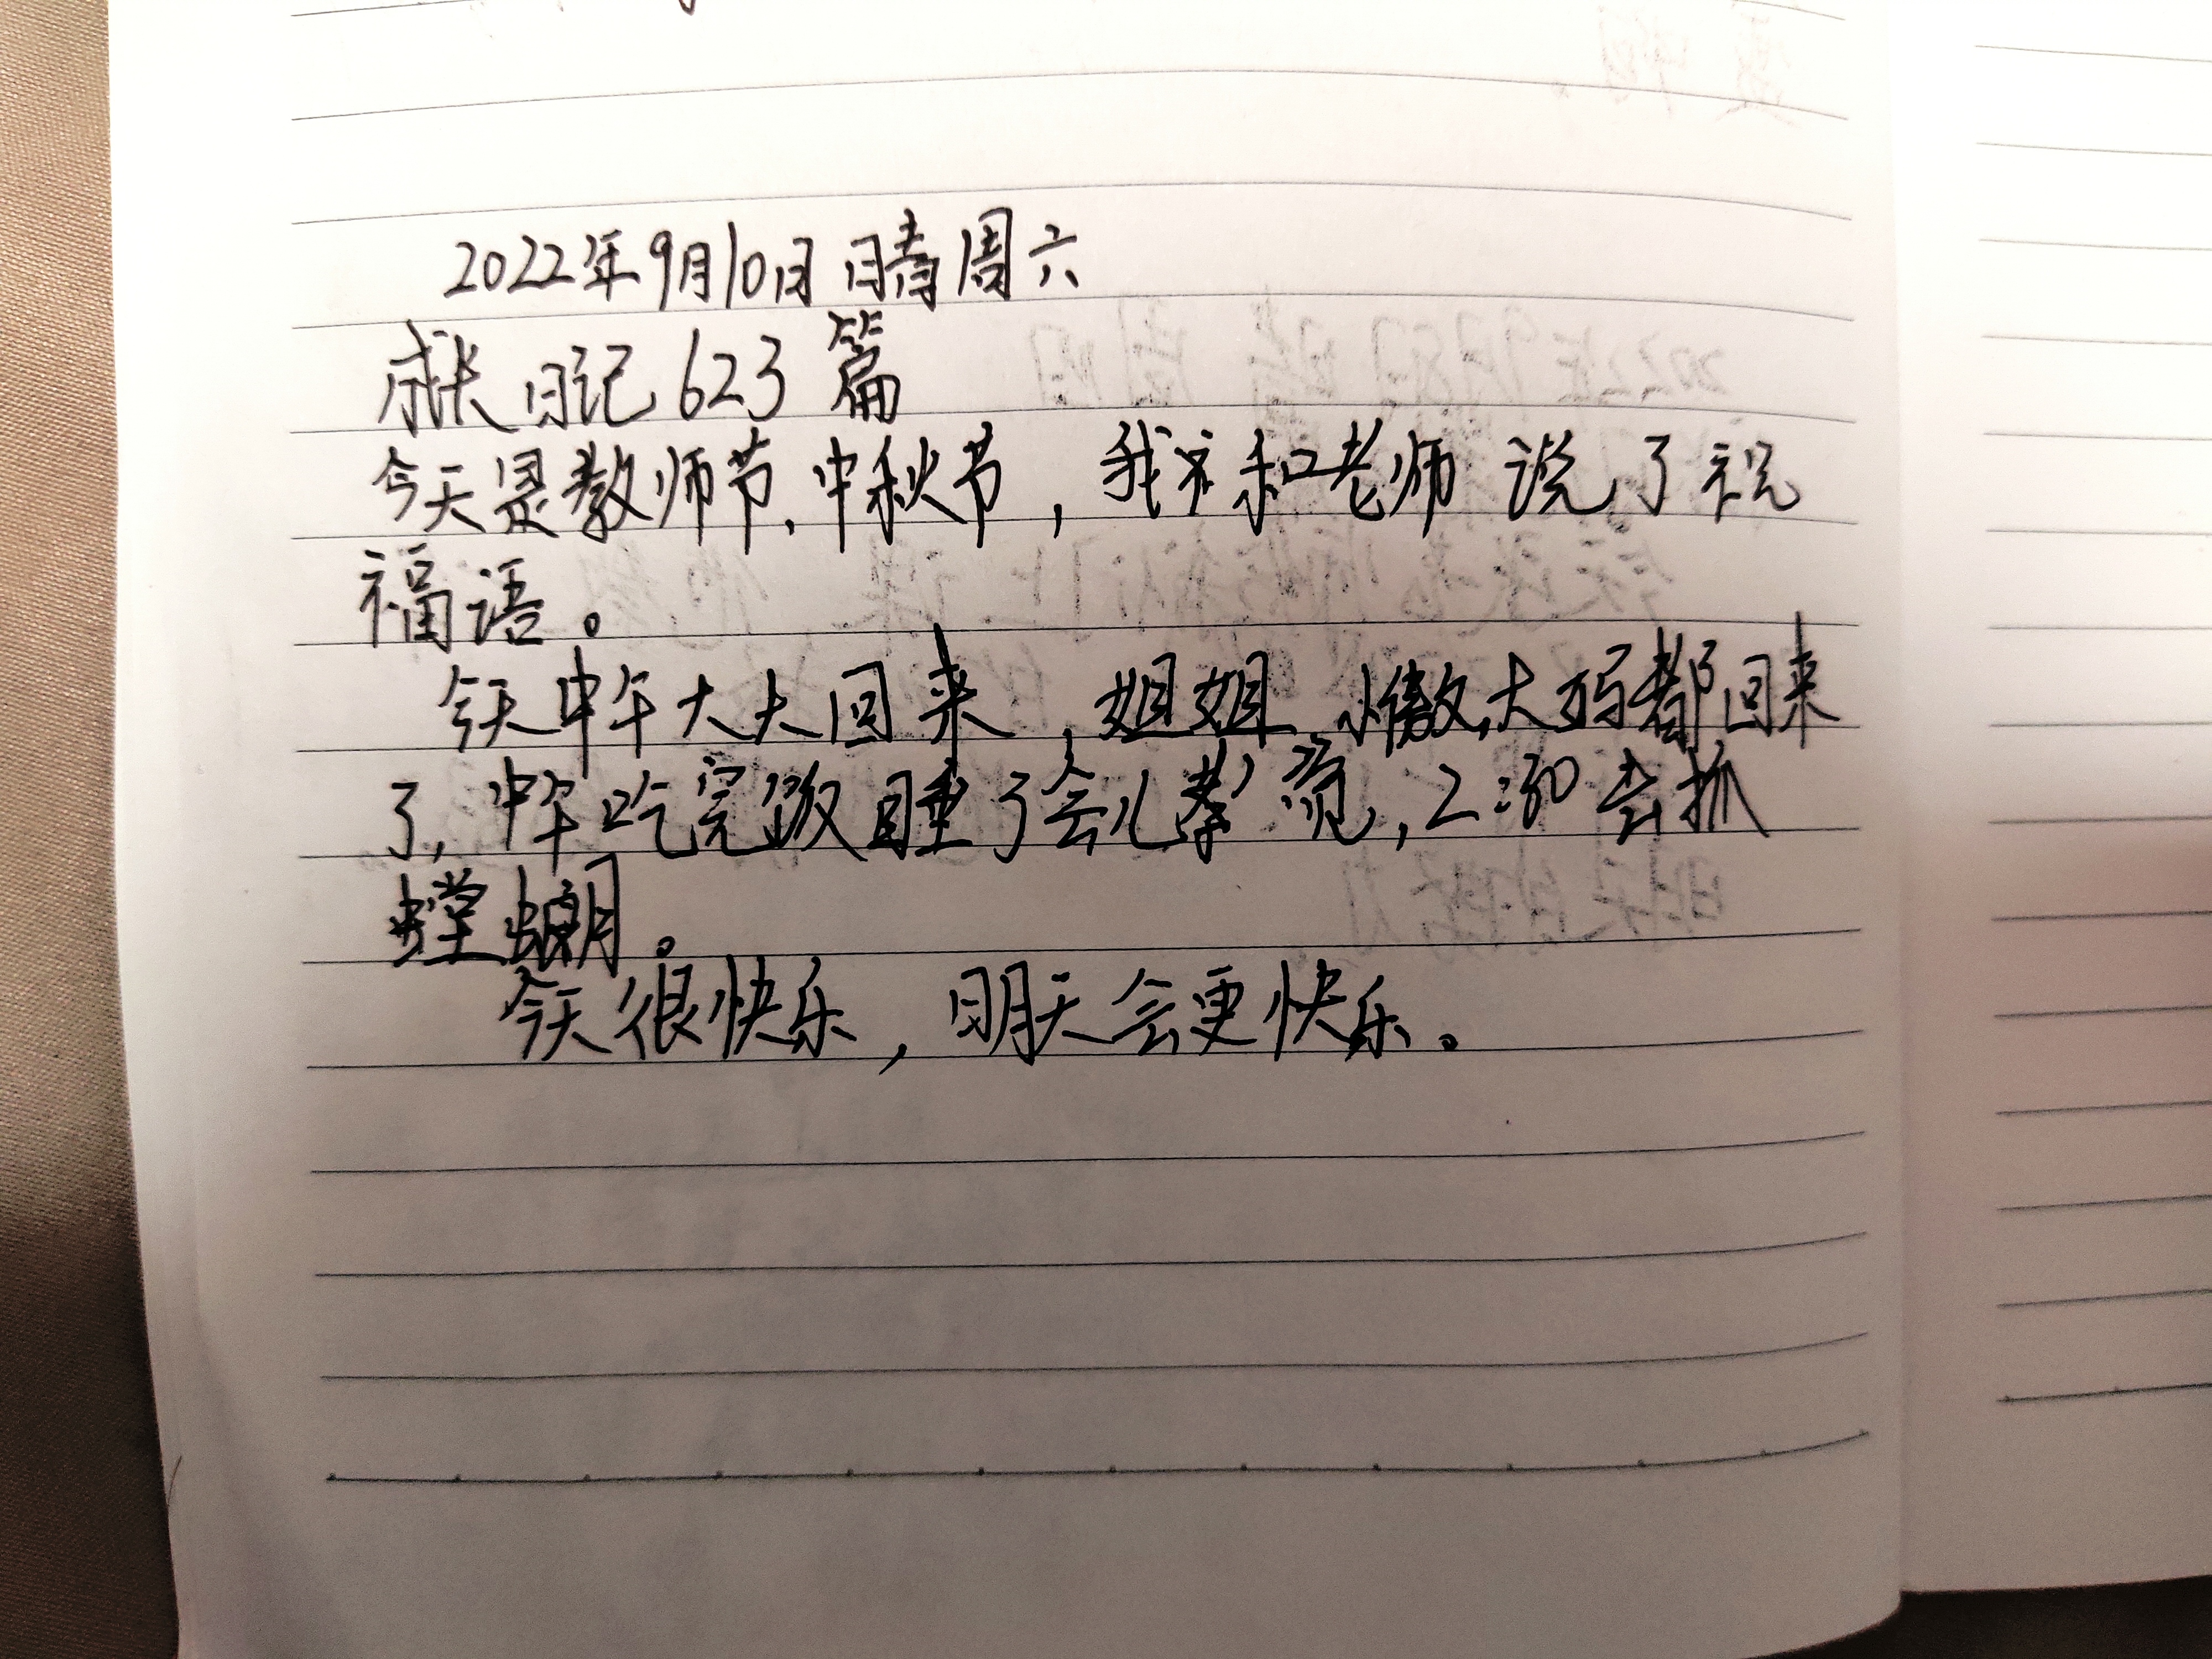 2022年9月10日 晴 周六
成长日记 623 篇
今天是教师节、中秋节，我和老师说了祝
福语。
今天中午大大回来，姐姐、大都回来
了，中午吃完饭睡了会儿觉，2:30去抓
螳螂。
今天很快乐，明天会更快乐。